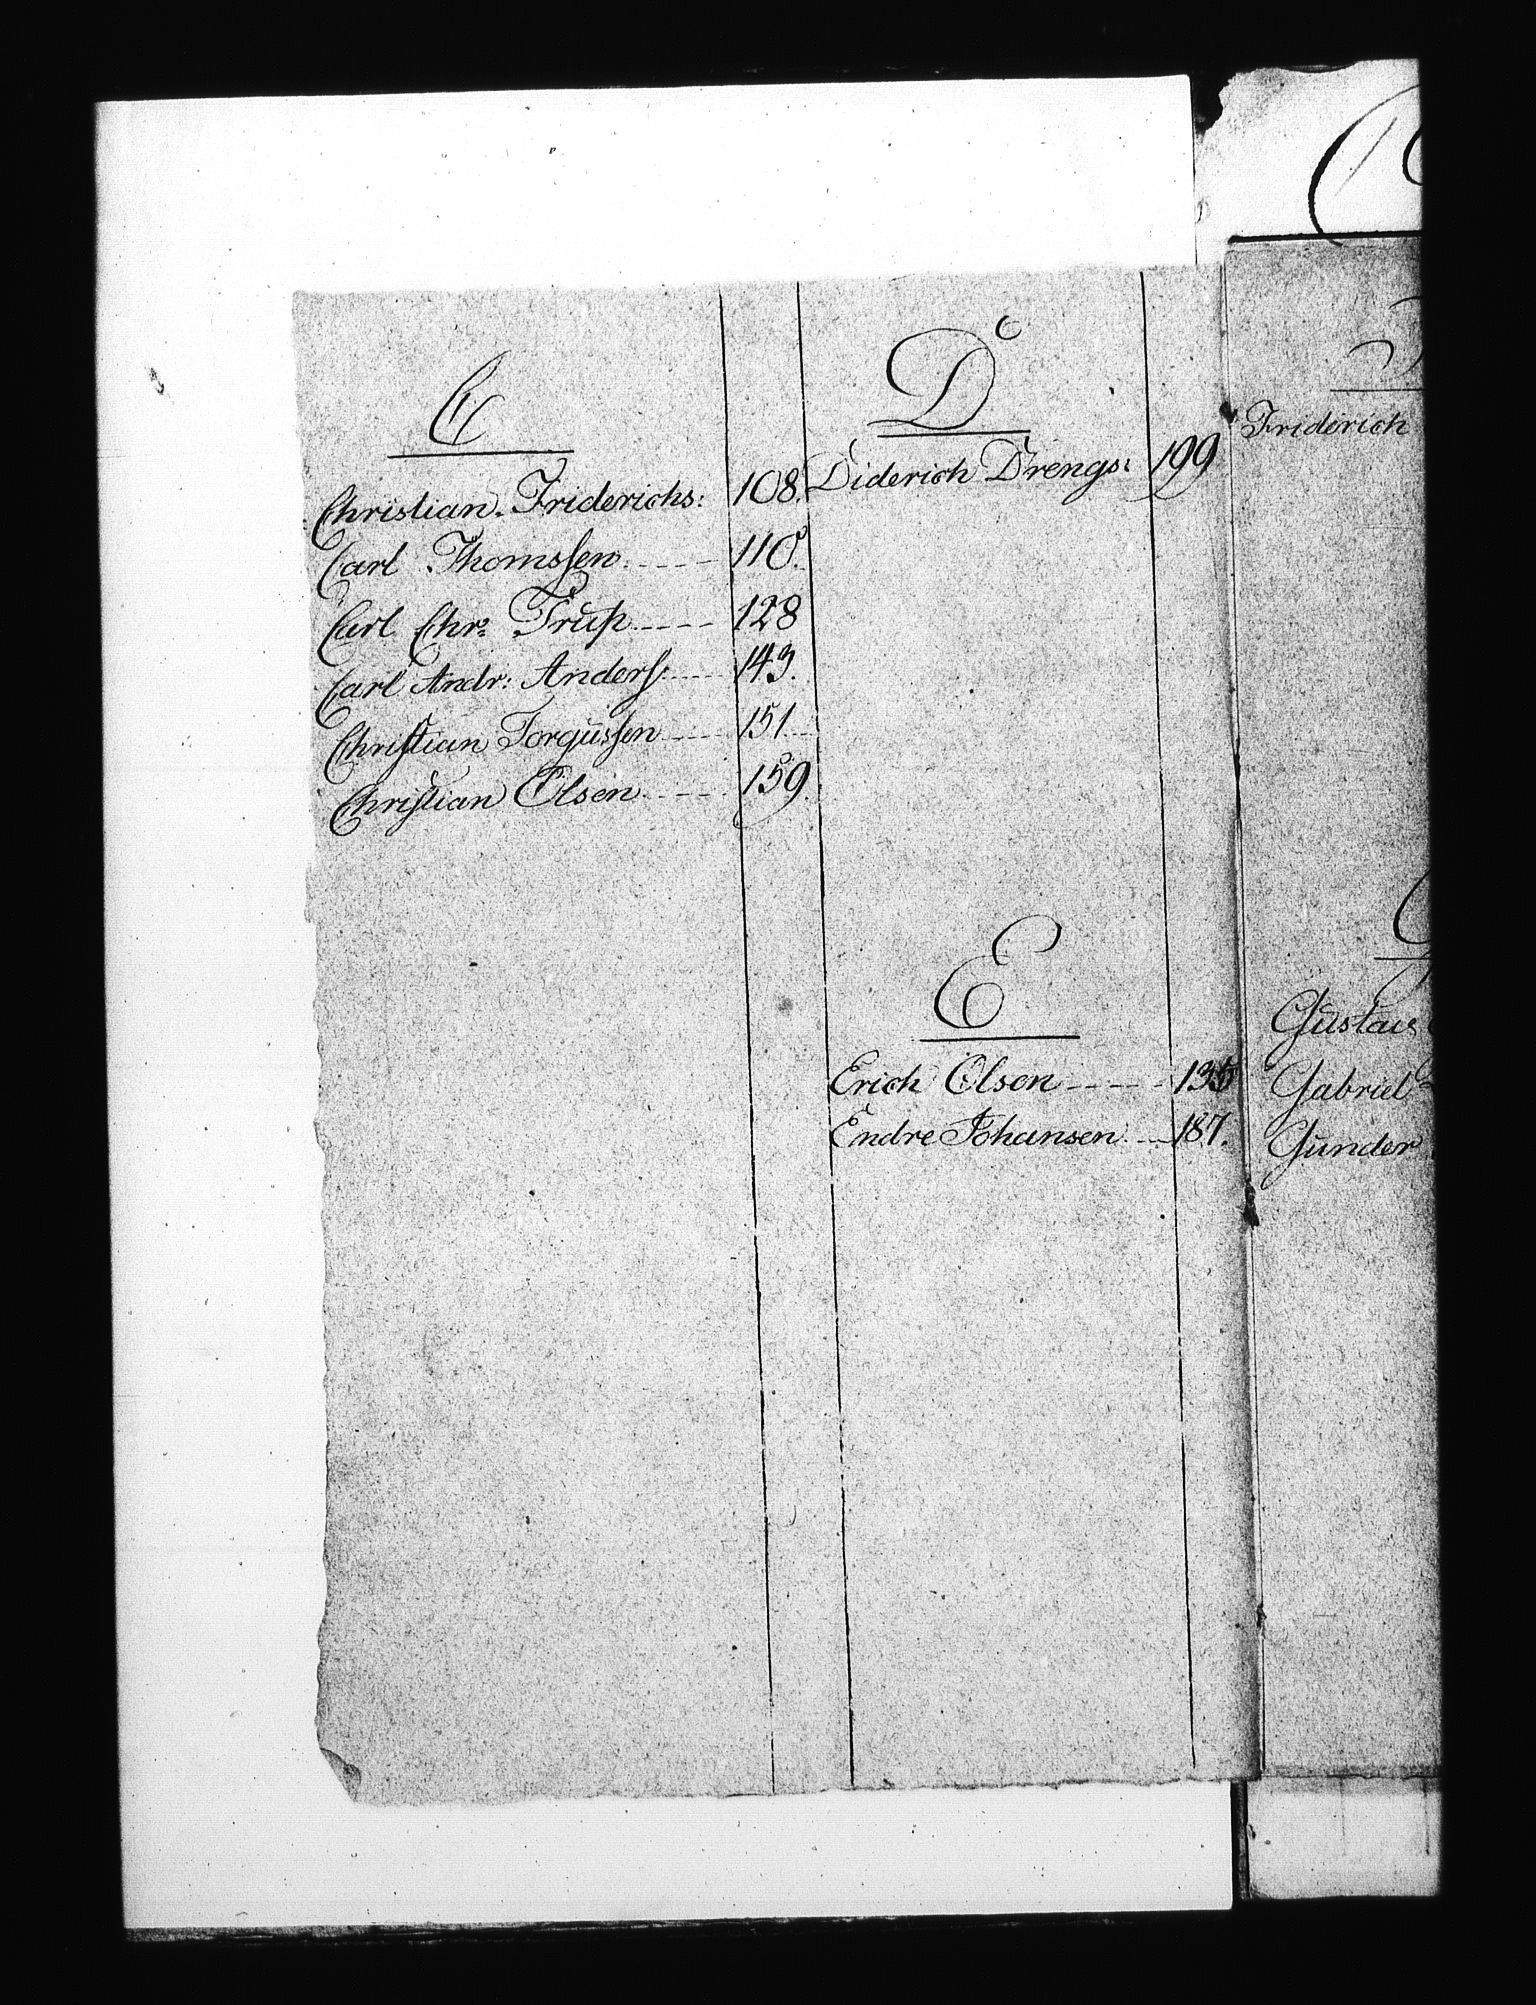 C
Christian Friderichs: 108.
Carl Thomssen 110.
Carl Chr: Trup 128
Carl Andr: Anders: 143.
Christian Torgüssen 151
Christian Olsen 159.
D
Diderich Drengs: 199
E
Erich Olsen 135
Endre Johansen 187.
Friderich
Güstav
Gabriel
Gunder